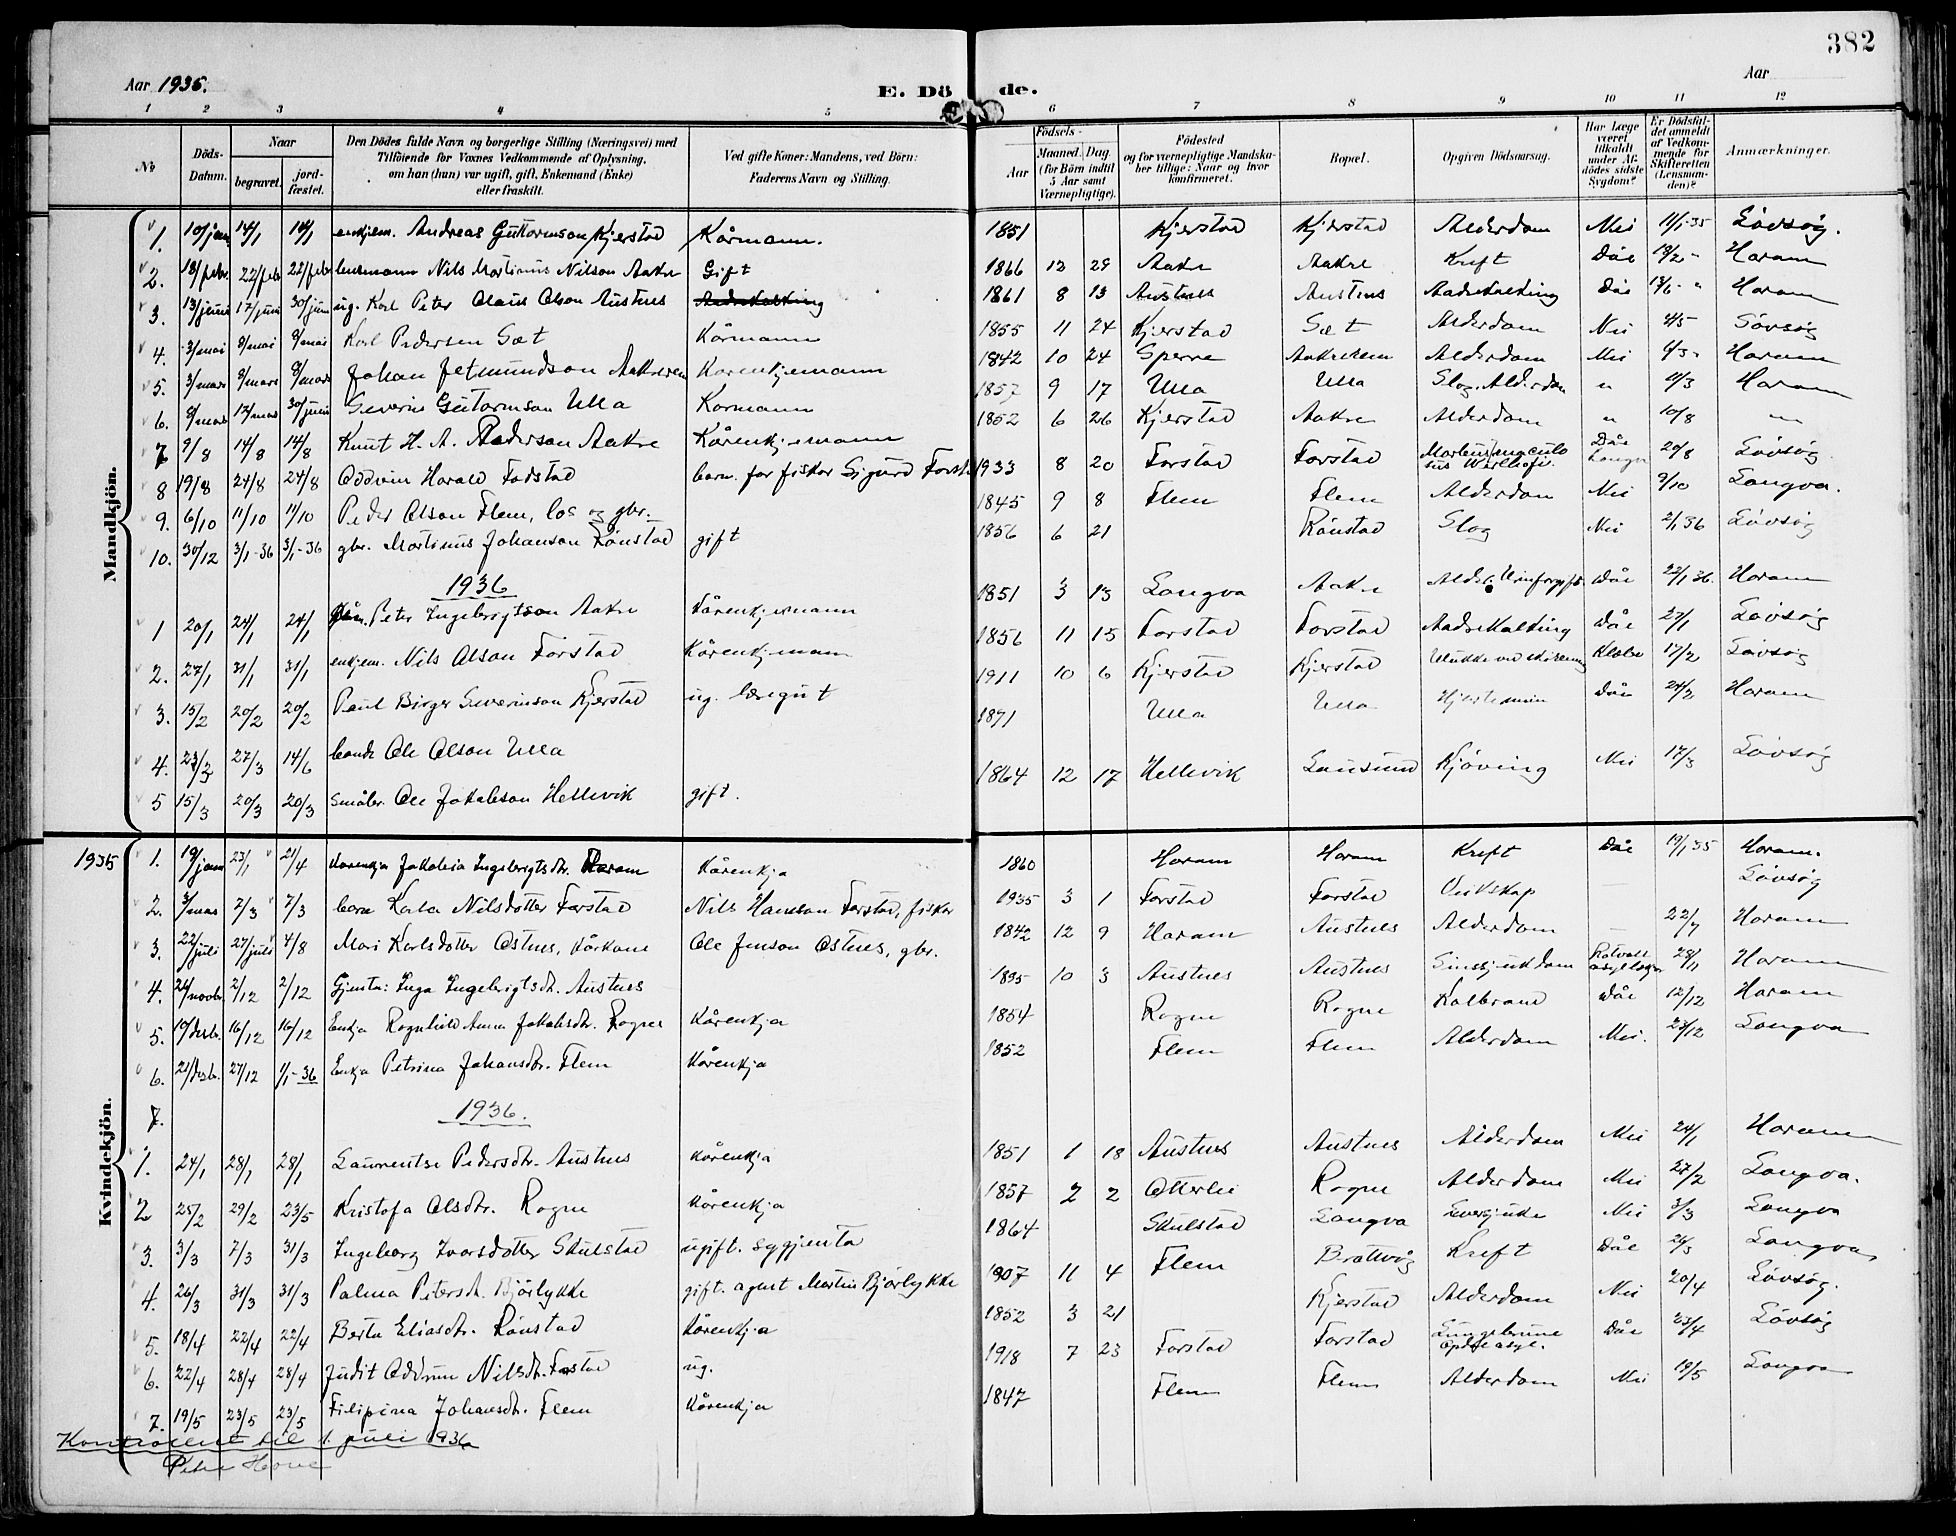 382
Aar 1935. E. Dö de. Aar
1 2 3 4 5 6 7 8 9 10 11 12
No Döds-Datum. Naar begravet. jord-fæstet. Den Dödes fulde Navn og borgerlige Stilling (Næringsvei) med Tilföiende for Voxnes Vedkommende af Oplysning, om han (hun) var ugift, gift, Enkemand (Enke) eller fraskilt. Ved gifte Koner: Mandens, ved Börn: Faderens Navn og Stilling. Födsels- Aar Maaned. Dag (for Börn indtil 5 Aar samt Værnepligtige). Födested og for værnepligtige Mandskaber tillige: Naar og hvor konfirmeret. Bopæl. Opgiven Dödsaarsag. Har Læge været tilkaldt under Afdödes sidste Sygdom? Er Dödsfaldet anmeldt af Vedkommende for Skifteretten (Lensmanden)? Anmærkninger.
Mandkjön.
1. 10/jan 14/1 14/1 enkjem. Andreas Guttormson Kjerstad Kårmann. 1851 Kjerstad Kjerstad Alderdom Nei 11/1-35 Lövsög.
2. 18/febr. 22/febr 22/febr lensmann Nils Martinus Nilson Aakre Gift 1866 12 29 Aakre Aakre Kreft Dåe 18/2 " Haram
3. 13/juni 17/juni 30/juni ug. Karl Peter Olaus Olson Austnes 1861 8 13 Austnes Austnes Aadrekalking Dåe 13/6 " Haram
4. 3/mai 8/mai 8/mai Karl Pedersen Sæt Kårmann 1855 11 24 Kjerstad Sæt Alderdom Nei 4/5 Lövsög
5. 3/mars 8/mars 8/mars Johan Jetmundson Aakrerem Karenkjemann 1842 10 24 Sperre Aakrereem Alderdom Nei 4/3 Haram
6. 8/mars 12/mars 30/juni Severin Guttormson Ulla Kormann 1857 9 17 Ulla Ulla Slag. Alderdom " 11/3 Haram
7 9/8 14/8 14/8 Knut H. A. Anderson Aakre Kårenkjemann 1852 6 26 Kjerstad Aakre Alderdom " 10/8 "
8 19/8 24/8 24/8 Oddvin Harald Fodstad barn. far fisker Sigurd Forst. 1933 8 20 Forstad Forstad Morbus maculosus Werlhofii. Dåe Longva 20/8 Lövsög
9. 6/10 11/10 11/10 Peder Olson Flem, los og gbr. 1845 9 8 Flem Flem Alderdom Nei 9/10 Longva.
10. 30/12 3/1-36 3/1-36 gbr. Martinus Johanson Rönstad gift 1856 6 21 Rönstad Slag Nei 2/1 36 Lövsög
1936
1 20/1 24/1 24/1 Peter Ingebrigtson Aakre Kårenkjemann 1851 3 13 Longva Aakre Alder. Urinforgift. Dåe 22/1 36. Haram
2. 27/1 31/1 31/1 enkjem. Nils Olson Forstad Kårenkjemann 1856 11 15 Forstad Forstad Aadrekalking Dåe 27/1 Lövsög
3. 15/2 20/2 20/2 Paul Birger Severinson Kjerstad ug. læregut 1911 10 6 Kjerstad Kjerstad Ulukke ved 17/2 Lövsög
4. 23/2 27/3 14/6 bonde Ole Olson Ulla 1871 Ulla Ulla Dåe 24/2 Haram
5 15/3 20/3 20/3 småbr. Ole Jakobson Hellevik gift. 1864 12 17 Hellevik Longsund Kjöving Nei 17/3 Lövsög
1935
Kvindekjön.
1. 19/jan 23/1 21/4 Karenkja Jakobia Ingebrigtsdtr. Haram Kårenkja 1860 Haram Haram Kreft Dåe 19/1 35 Haram.
2. 3/mar 7/3 7/3 barn Karla Nilsdotter Forstad Nils Hansson Forstad, fisker 1935 3 1 Forstad Forstad Veikskap — Lövsög
3. 22/juli 27/juli 4/8 Mari Karlsdotter Ostnes, kårkone Ole Jenson Ostnes, gbr. 1842 12 9 Haram Austnes Alderdom — 22/7 Haram
4. 24/novbr. 2/12 2/12 Gjenta: Inga Ingebrigtsdtr. Austnes 1895 10 3 Austnes Austnes Sinnsjukdom 28/11 Haram
5. 10/desb. 16/12 16/12 Enkja Ragnhild Anna Jakobsdtr. Rogne Kårenkja 1854 Rogne Rogne Kolbrand Dåe 12/12 Haram
6. 21/desb. 27/12 1/1-36 Enkja Petrina Johansdtr. Flem Kårenkja 1852 Flem Flem Alderdom Nei. 23/12 Longva
7. 1936.
1. 24/1 28/1 28/1 Laurentse Pedersdtr. Austnes Kårenkja 1851 1 18 Austnes Austnes Alderdom Nei 24/1 Haram
2 25/2 29/2 23/5 Kristofa Olsdtr. Rogne Kårenkja 1857 2 2 Otterlei Rogne Alderdom Nei 27/2 Longva.
3. 3/3 7/3 31/3 Ingeborg Ivarsdotter Skulstad ugift. sygjenta 1864 Skulstad Longva Nei 3/3 Longva
4. 26/3 31/3 31/3 Palma Petersdt. Bjørlykke gift. agent Martin Bjørlykke 1907 11 4 Flem Brattvåg Kreft Dåe 26/3 Longva
5. 18/4 22/4 22/4 Berta Eliasdtr. Rönstad Kårenkja 1852 3 21 Kjerstad Alderdom Nei 20/4 Lövsög.
6. 22/4 28/4 28/4 Judit Oddrun Nilsdtr. Forstad ug. 1918 7 23 Forstad Forstad Dåe 23/4 Lövsög
7. 19/5 23/5 23/5 Filipina Johansdtr. Flem Kårenkja 1847 Flem Flem Alderdom Nei 19/5 Longva
Kontrollert til 1. juli 1936